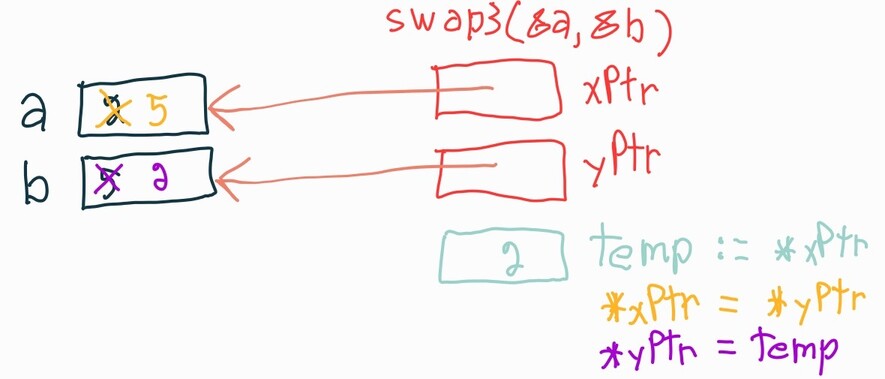 swap3(&a, &b)
a 2 5 xPtr
b 5 2 yPtr
2 temp := *xPtr
*xPtr = *yPtr
*yPtr = temp